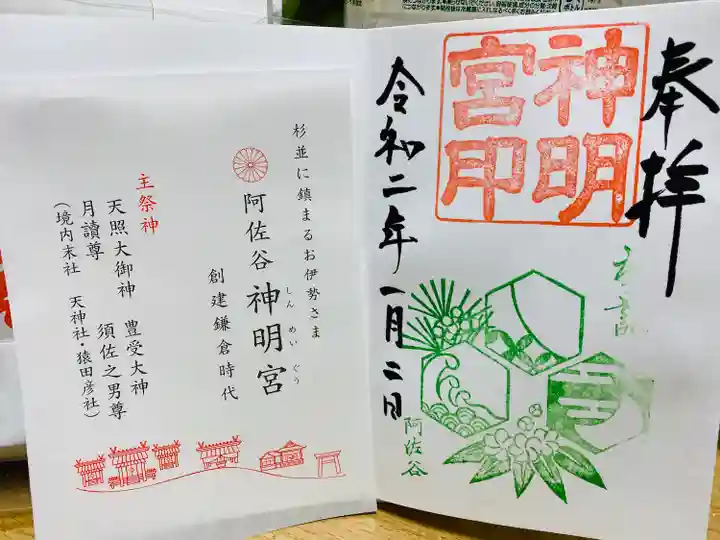 奉拝
神明
宮印
令和二年一月二日
阿佐谷
杉並に鎮まるお伊勢さま
阿佐谷神明宮
しんめいぐう
創建鎌倉時代
主祭神
天照大御神 豊受大神
月讀尊 須佐之男尊
（境内末社 天神社・猿田彦社）